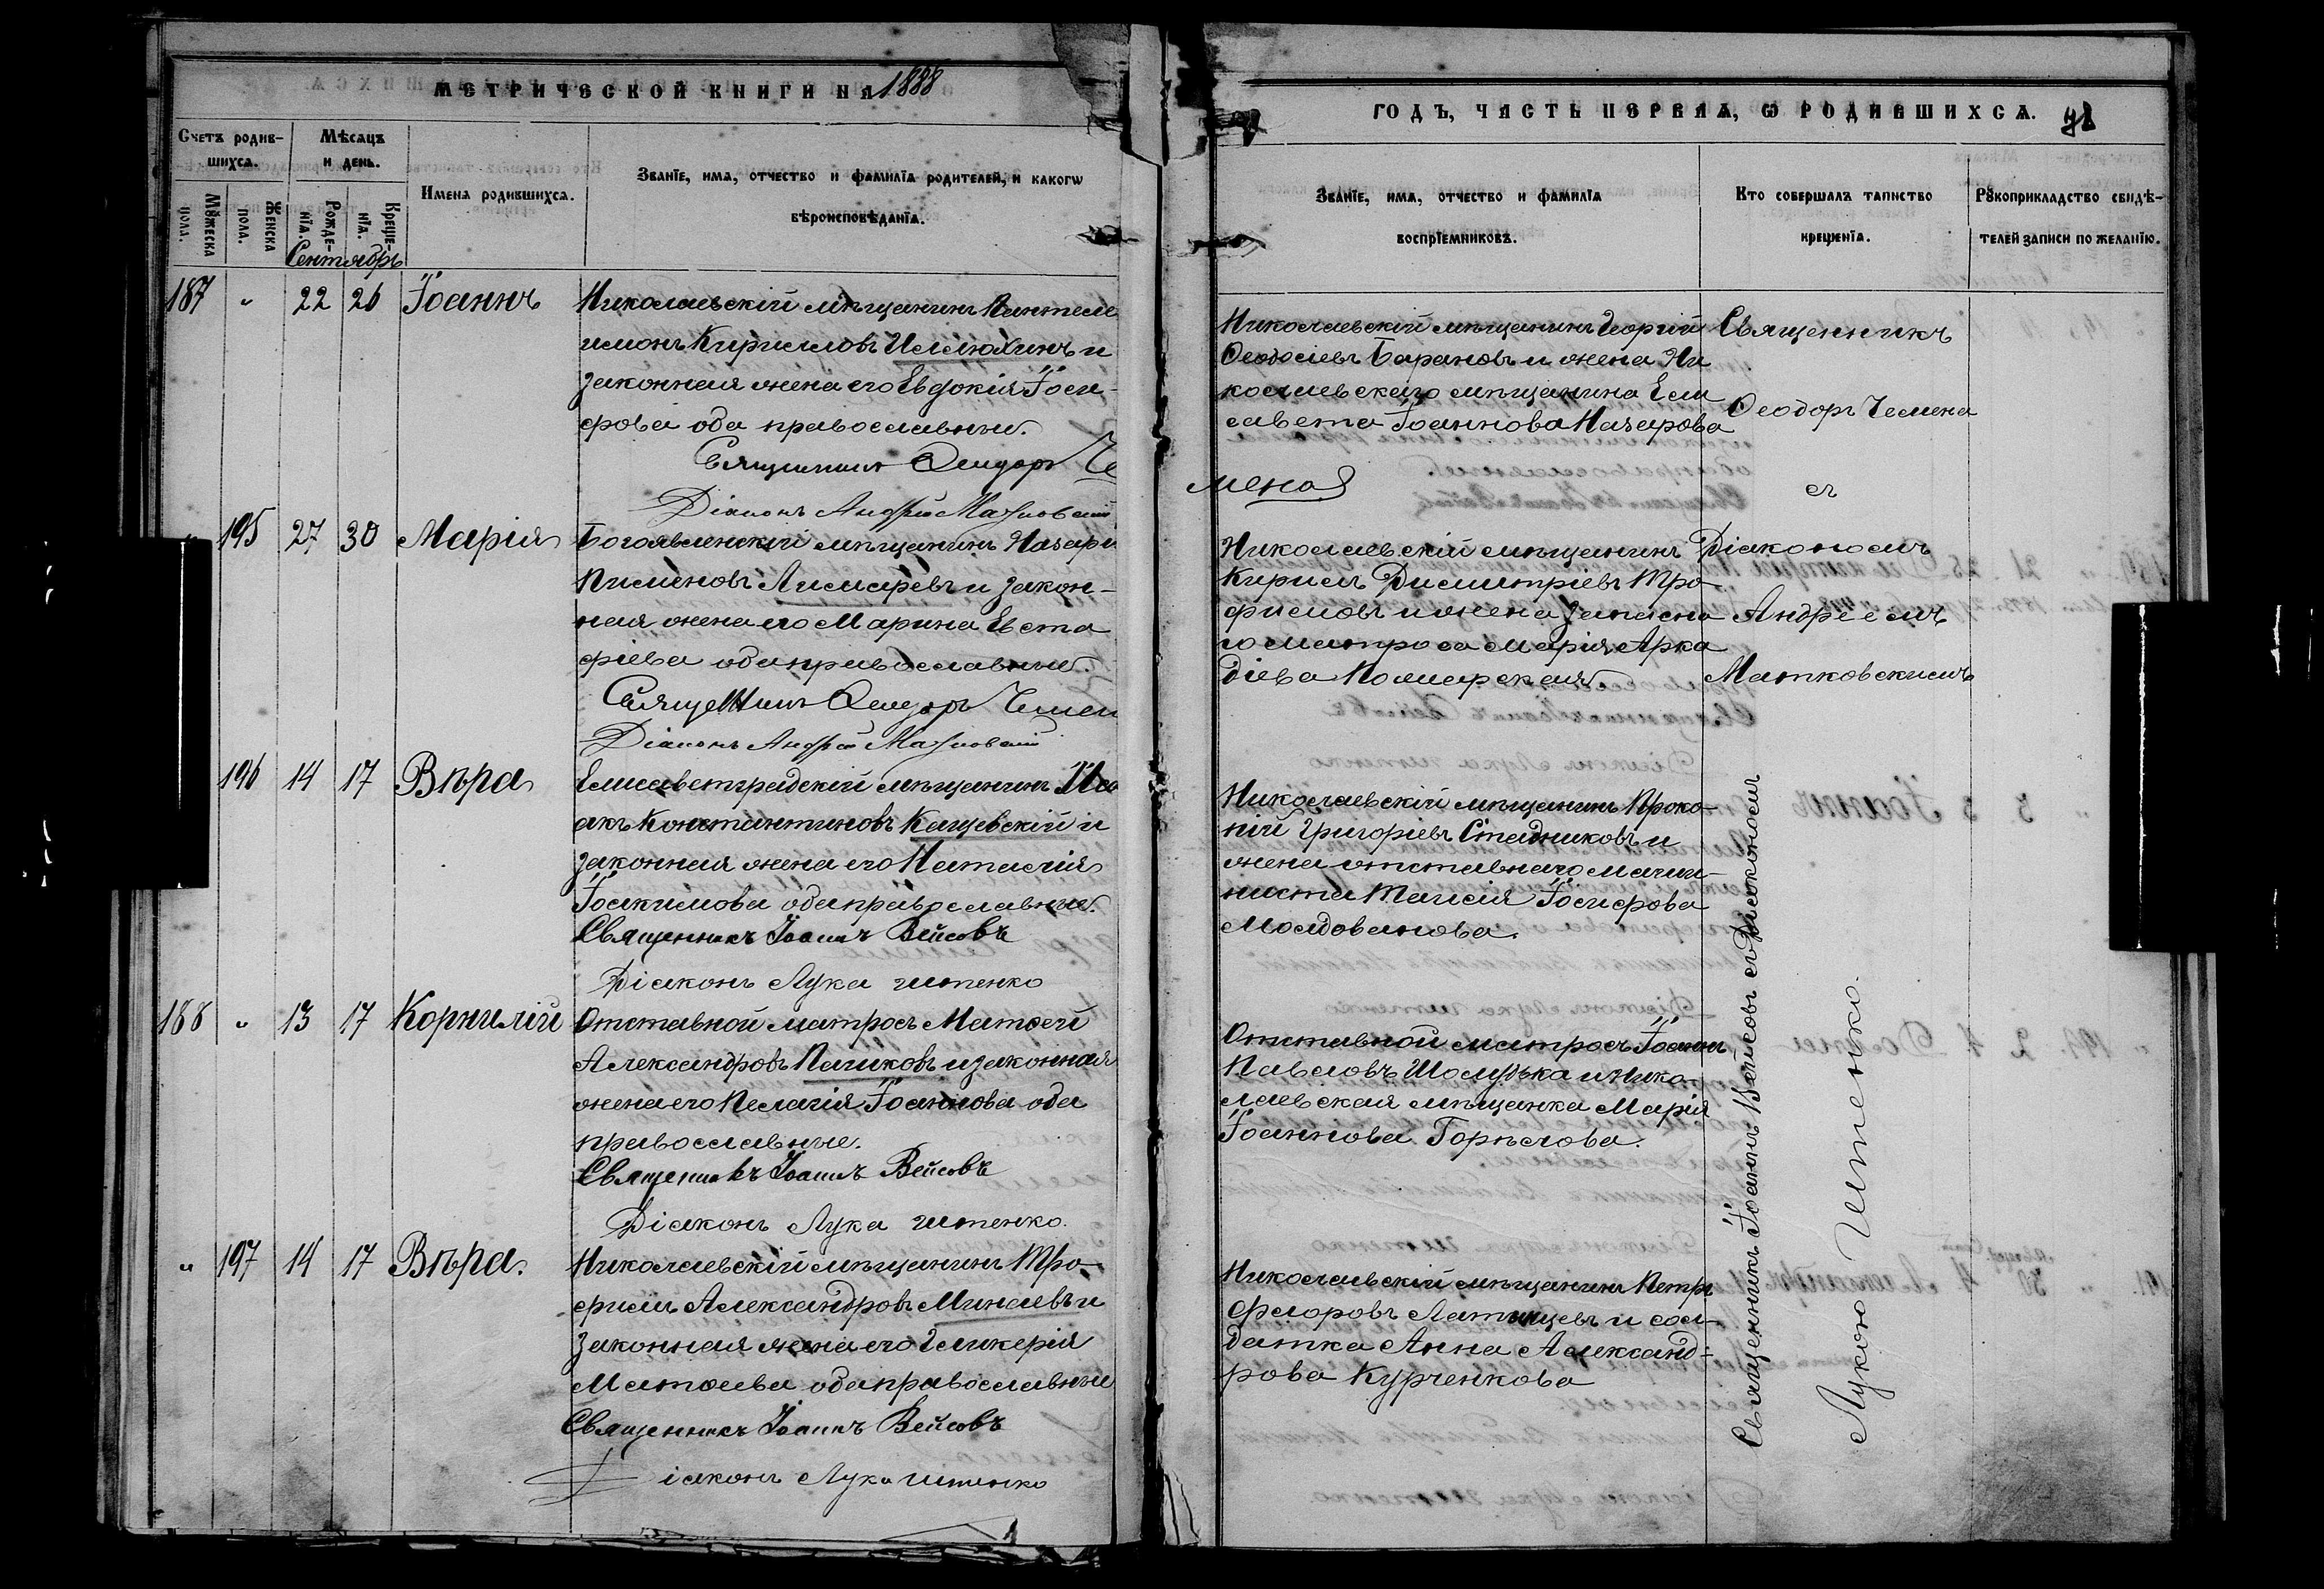 МЕТРИЧЕСКОЙ КНИГИ НА 1888
Счетъ родив-
шихся.
Мѣсяцъ
и день.
Мꙋжеска
пола.
Женска
пола.
Рожде-
нїя.
Креще-
нїя.
Имена родившихся.
Званїе, имя, отчество и фамилїа родителей, и какогѡ
вѣроисповѣданїа.
Сентябрь
187 " 22 26 Іоаннъ
Николаевскій мѣщанинъ Пантеле
имонъ Кирилловъ Иллюхинъ и
законная жена его Евдокія Іоси-
фова оба православные.
Священникъ Ѳеодоръ Че
Діаконъ Андрей Матковскій
" 195 27 30 Марія
Богоявленскій мѣщанинъ Назарі
Пименовъ Лимаревъ и закон-
ная жена его Марина Евста
фіева оба православные.
Священникъ Ѳеодоръ Чемен
Діаконъ Андрей Матковскій
196 14 17 Вѣра
Елисаветградскій мѣщанинъ Иса
акъ Константиновъ Кащевскій и
законная жена его Наталія
Іоакимова оба православные.
Священникъ Іоаннъ Вейсовъ
Діаконъ Лука Иштенко
188 " 13 17 Корнилій
Отставной матросъ Матѳей
Александровъ Пашковъ и законная
жена его Пелагія Іоаннова оба
православные.
Священникъ Іоаннъ Вейсовъ
Діаконъ Лука Иштенко.
" 197 14 17 Вѣра.
Николаевскій мѣщанинъ Тро-
фимъ Александровъ Минаевъ и
законная жена его Гликерія
Матѳеева оба православные
Священникъ Іоаннъ Вейсовъ
Діаконъ Лука Иштенко
ГОДЪ, ЧАСТЬ ПЕРВАЯ, Ѡ РОДИВШИХСЯ.
Званїе, имя, отчество и фамилїа
воспрїемниковъ.
Кто совершалъ таинство
крещенїа.
Рꙋкоприкладство свидѣ-
телей записи по желанїю.
Николаевскій мѣщанинъ Георгій
Ѳеодосіевъ Барановъ и жена Ни
колаевскаго мѣщанина Ели
савета Іоаннова Назарова
мена
Священникъ
Ѳеодоръ Чемена
съ
Николаевскій мѣщанинъ
Кирилъ Димитріевъ Тро-
фимовъ и жена запасна
го матроса Марія Арка
діева Полмарская
Діакономъ
Андреемъ
Матковскимъ
Николаевскій мѣщанинъ Проко-
пій Григоріевъ Стадниковъ и
жена отставнаго маши-
ниста Таисія Іосифова
Молдованова.
Отставной матросъ Іоаннъ
Павловъ Шолудька и Нико-
лаевская мѣщанка Марія
Іоаннова Горѣлова.
Николаевскій мѣщанинъ Петръ
Флоровъ Латынцевъ и сол-
датка Анна Александ-
рова Курченкова
Священникъ Іоаннъ Вейсовъ съ Діакономъ
Лукою Иштенко.